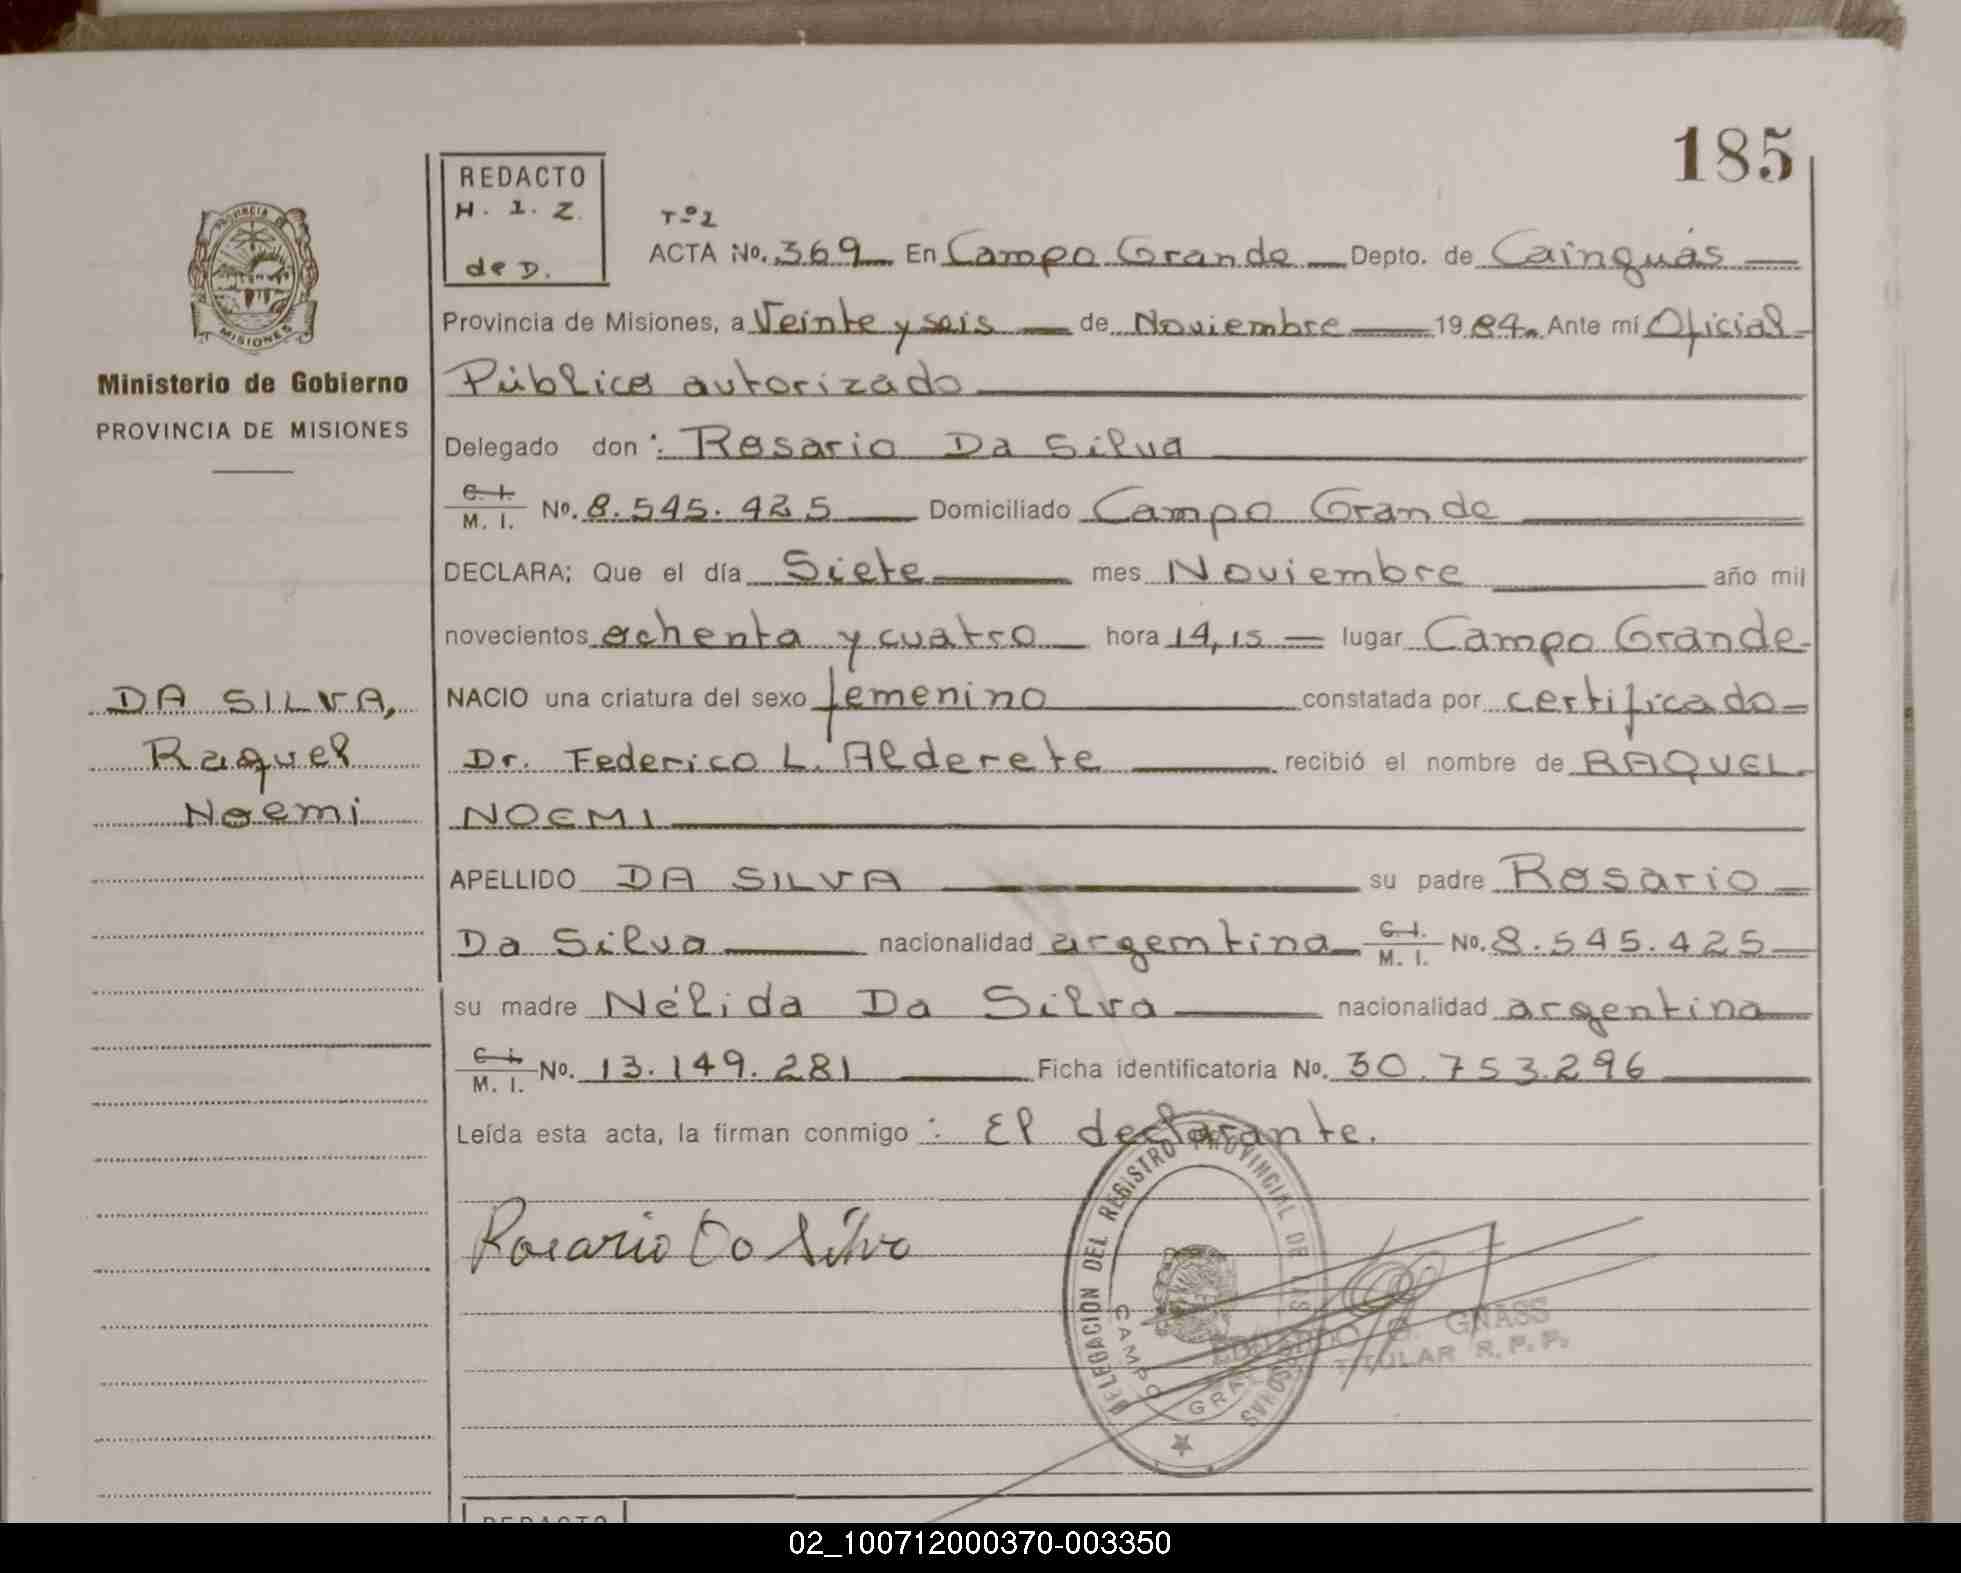 185
REDACTO
H. I. Z.
de D.
Tº 2
ACTA No. 369 En Campo Grande Depto. de Cainguás
Provincia de Misiones, a Veinte y seis de Noviembre 19 84. Ante mí Oficial
Público autorizado
Delegado don : Rosario Da Silva
C. I.
M. I. No. 8.545.425 Domiciliado Campo Grande
DECLARA; Que el día Siete mes Noviembre año mil
novecientos ochenta y cuatro hora 14,15 lugar Campo Grande
NACIO una criatura del sexo femenino constatada por certificado
Dr. Federico L. Alderete recibió el nombre de RAQUEL
NOEMI
APELLIDO DA SILVA su padre Rosario
Da Silva nacionalidad argentina C. I.
M. I. No. 8.545.425
su madre Nélida Da Silva nacionalidad argentina
C. I.
M. I. No. 13.149.281 Ficha identificatoria No. 30.753.296
Leída esta acta, la firman conmigo : El declarante.
Rosario Da Silva
DELEGACION DEL REGISTRO PROVINCIAL DE LAS PERSONAS
CAMPO GRANDE
EDUARDO G. GNASS
TITULAR R. P. P.
PROVINCIA DE
MISIONES
Ministerio de Gobierno
PROVINCIA DE MISIONES
DA SILVA,
Raquel
Noemi
REDACTO
02_100712000370-003350